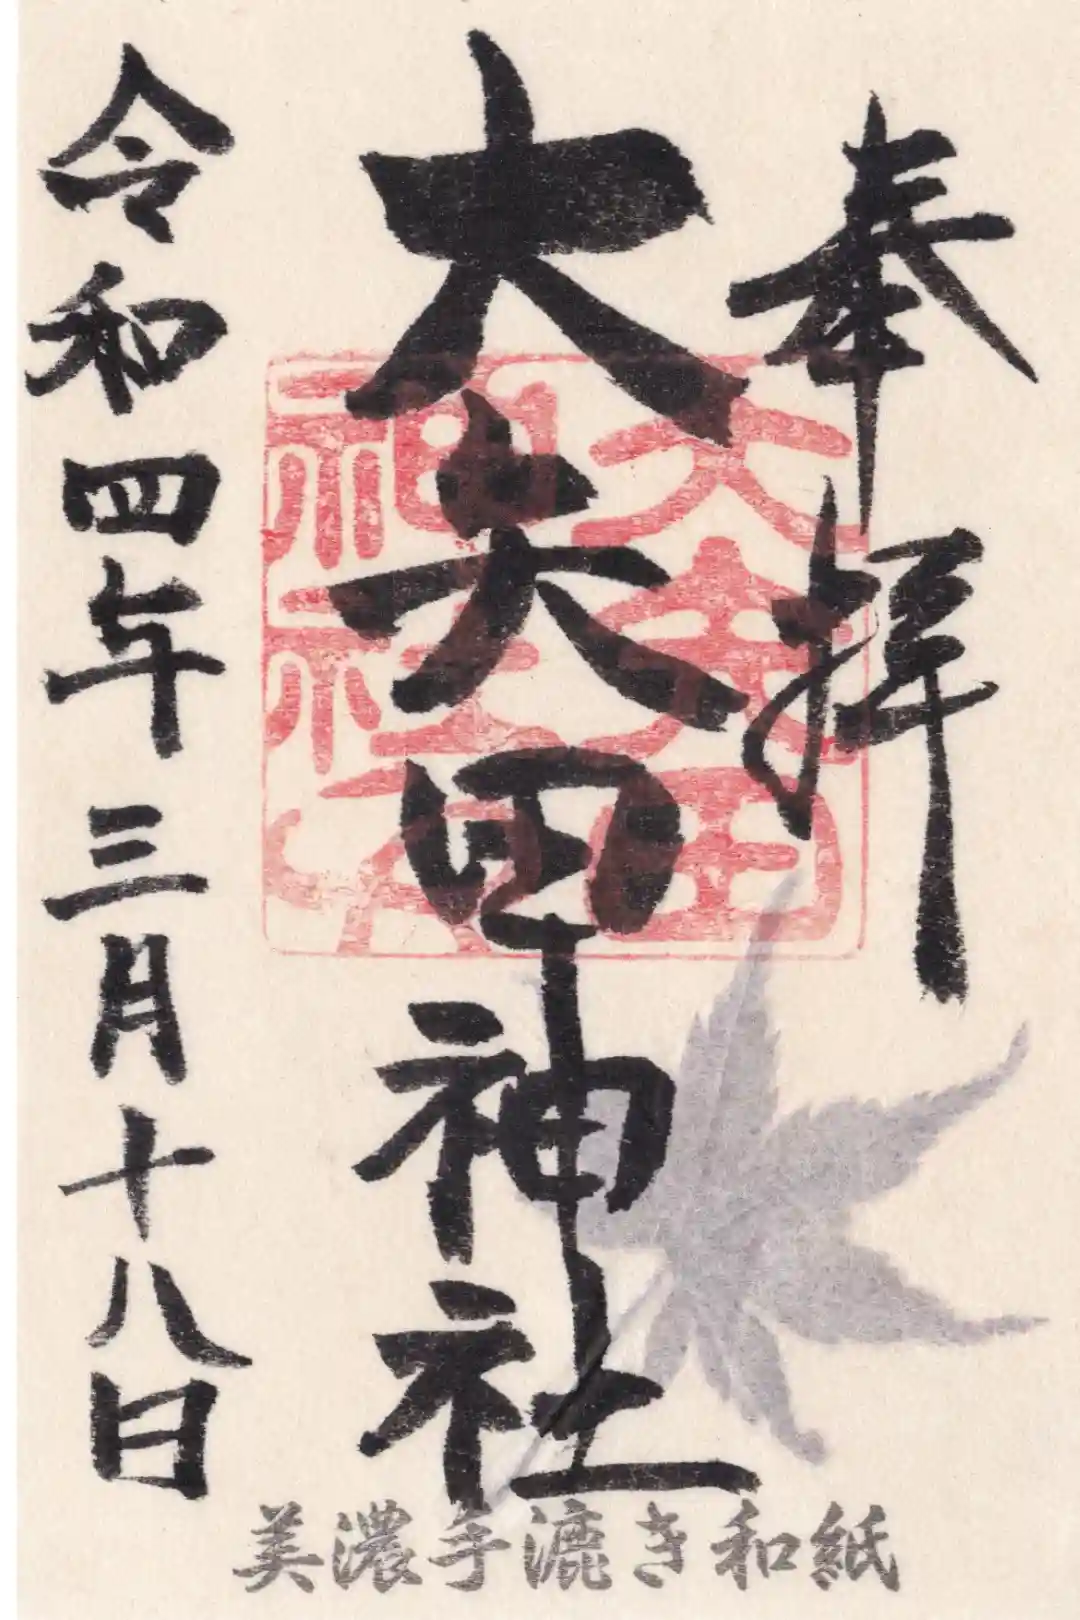 奉拝
大矢田神社
大矢田
神社
令和四年三月十八日
美濃手漉き和紙